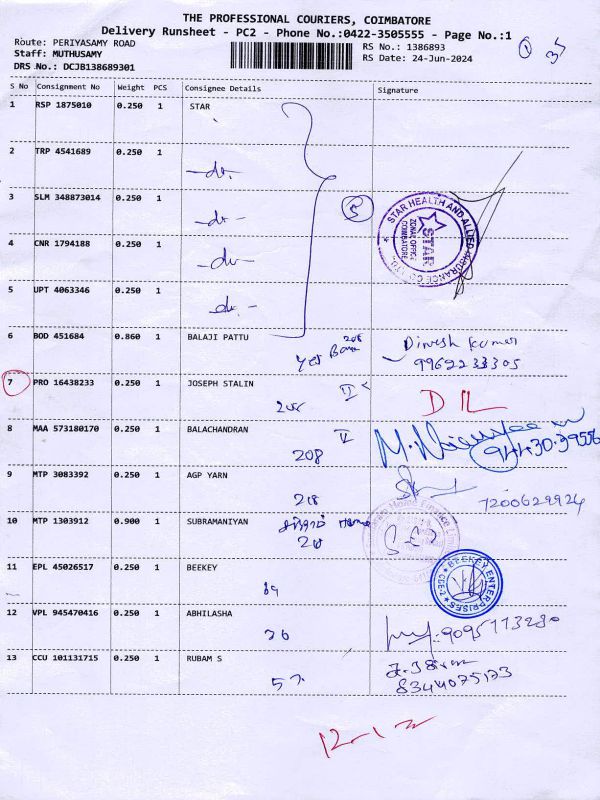 THE PROFESSIONAL COURIERS, COIMBATORE
Delivery Runsheet - PC2 - Phone No.:0422-3505555 - Page No.:1
Route: PERIYASAMY ROAD
RS No.: 1386893
Staff: MUTHUSAMY
RS Date: 24-Jun-2024
DRS No.: DCJB138689301
S No Consignment No Weight PCS Consignee Details Signature
1 RSP 1875010 0.250 1 STAR
2 TRP 4541689 0.250 1
3 SLM 348873014 0.250 1
5
STAR HEALTH AND ALLIED INSURANCE CO. LTD.
STAR
ZONAL OFFICE
COIMBATORE
4 CNR 1794188 0.250 1
5 UPT 4063346 0.250 1
6 BOD 451684 0.860 1 BALAJI PATTU 208 Dinesh Kumar
Yes Bank 9962233305
7 PRO 16438233 0.250 1 JOSEPH STALIN
208 DIL
8 MAA 573180170 0.250 1 BALACHANDRAN
208 94430-39556
9 MTP 3083392 0.250 1 AGP YARN
218 7200629924
10 MTP 1303912 0.900 1 SUBRAMANIYAN
Home Finance
11 EPL 45026517 0.250 1 BEEKEY
BEEKEY ENTERPRISES
CBE-2
12 VPL 945470416 0.250 1 ABHILASHA
36 9095113280
13 CCU 101131715 0.250 1 RUBAM S
8344075173
12-1-2